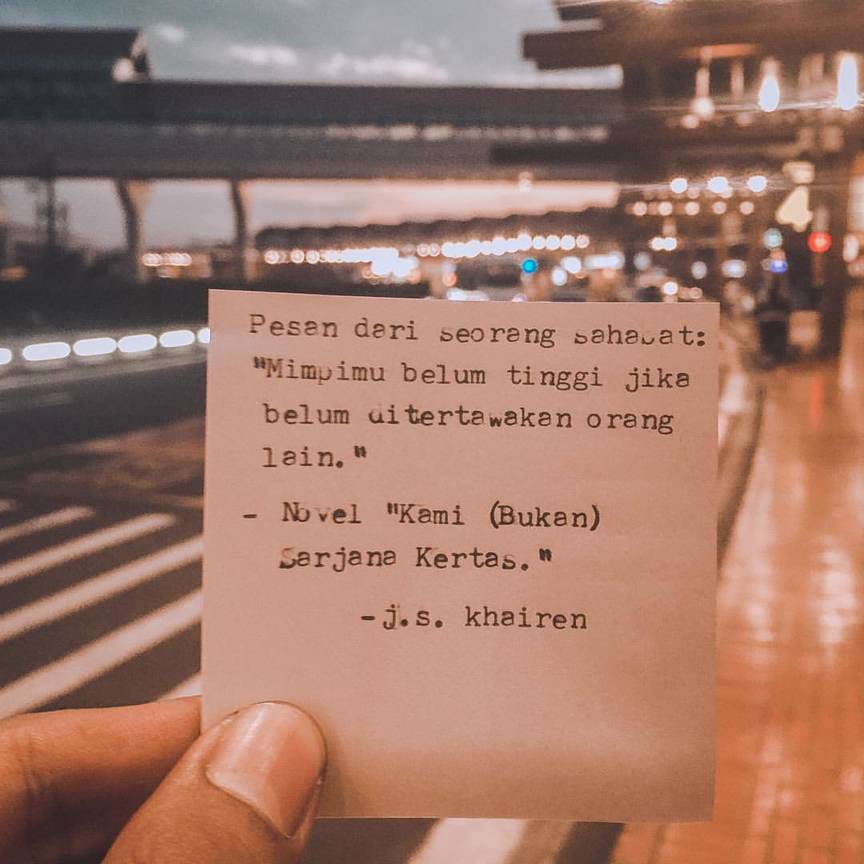 Pesan dari seorang sahabat:
"Mimpimu belum tinggi jika
belum ditertawakan orang
lain."
- Novel "Kami (Bukan)
Sarjana Kertas."
-j.s. khairen
4